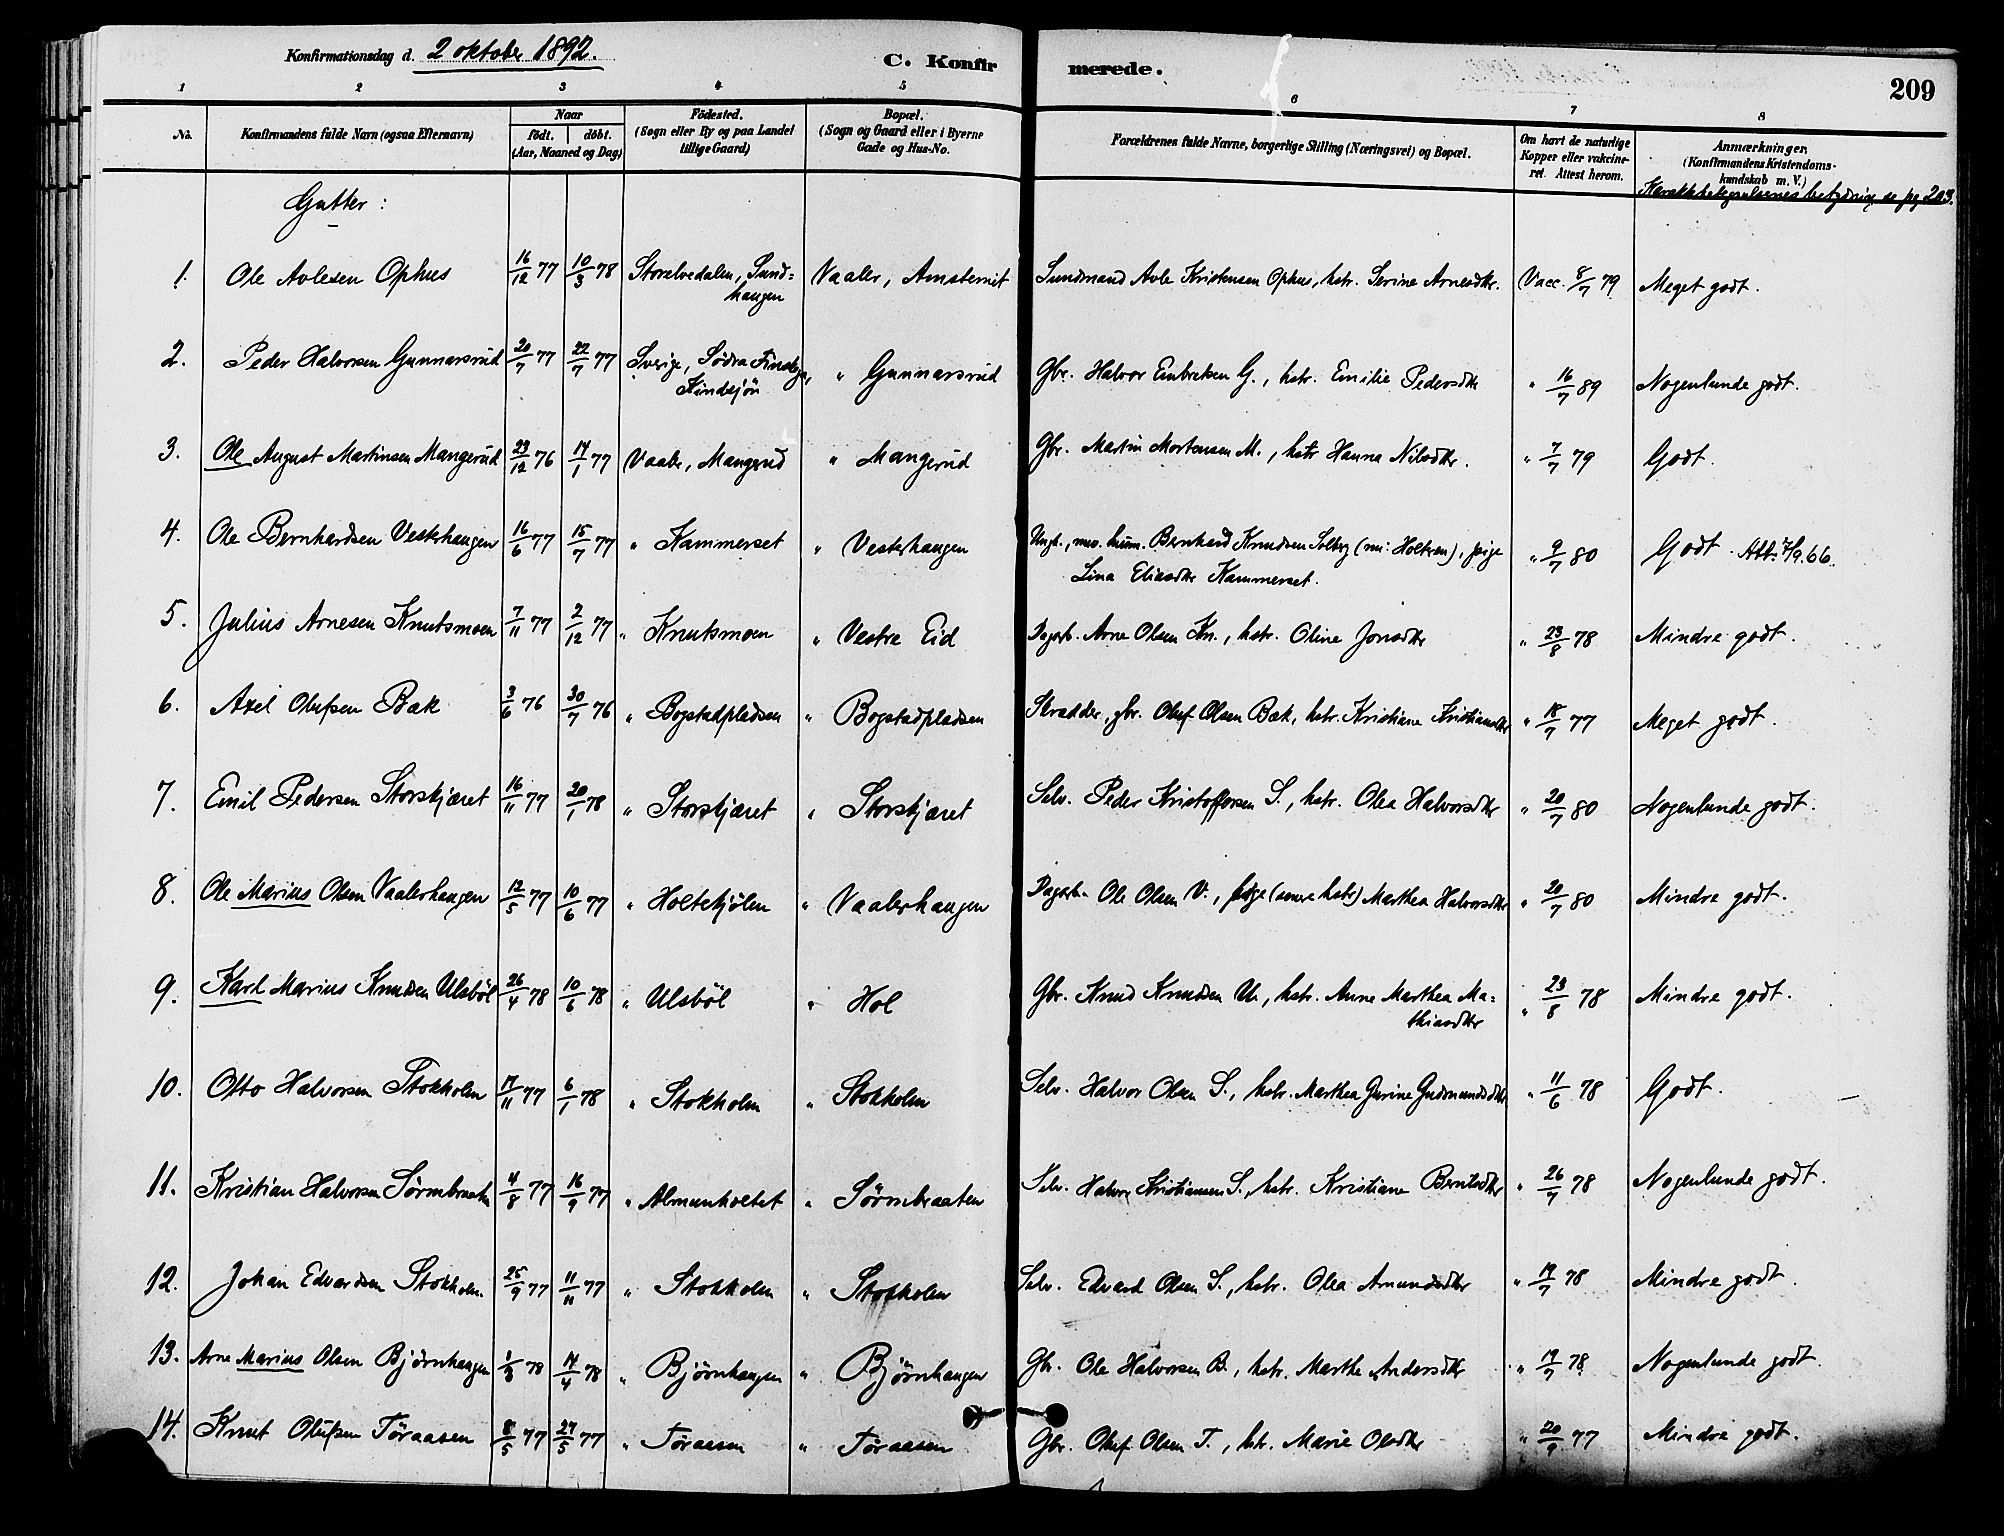 Konfirmationsdag d. 2 oktober 1892.
C. Konfirmerede.
209
1 2 3 4 5 6 7 8
No. Konfirmandens fulde Navn (ogsaa Efternavn) Naar födt. döbt. (Aar, Maaned og Dag) Födested. (Sogn eller By og paa Landet tillige Gaard) Bopæl. (Sogn og Gaard eller i Byerne Gade og Hus-No. Forældrenes fulde Navne, borgerlige Stilling (Næringsvei) og Bopæl. Om havt de naturlige Kopper eller vakcineret. Attest herom. Anmærkninger. (Konfirmandens Kristendomskundskab m. V.)
betydning se pg 203.
Gutter:
1. Ole Avlesen Ophus 16/12 77 10/3 78 Storelvedalen, Sundhaugen Vaaler, Sundmand Avle Kristensen Ophus, hstr. Serine Arnesdtr. Vacc. 8/7 79 Meget godt.
2. Peder Halvorsen Gunnarsrud 20/7 77 22/7 77 Sverige, Södra Finskoga, " Gunnarsrud Gbr. Halvor Embretsen G., hstr. Emilie Pedersdtr " 16/7 89 Nogenlunde godt.
3. Ole August Martinsen Mangerud 23/12 76 14/1 77 Vaaler, Mangrud " Mangerud Gbr. Martin Mortensen M., hstr Hanna Nilsdtr. " 7/7 79 Godt.
4. Ole Bernhardsen Vesterhaugen 16/6 77 15/7 77 " Kammerset " Vesterhaugen Ungk., Bernhard Knudsen Solberg (nu: Holteren), pige
Lina Eliasdtr Kammerset. " 9/7 80 Godt. Att. 7/9.66.
5. Julius Arnesen Knutsmoen 7/11 77 2/12 77 " Knutsmoen " Vestre Eid Dagarb. Arne Olsen Kn., hstr. Oline Jonsdtr " 23/8 78 Mindre godt.
6. Axel Olufsen Bak 3/6 76 30/7 76 " Bogstadpladsen " Bogstadpladsen Skrædder, gbr. Oluf Olsen Bæk, hstr. Kristiane Kristiansdtr " 18/7 77 Meget godt.
7. Emil Pedersen Storskjæret 16/11 77 20/1 78 " Storskjæret " Storskjæret Selv. Peder Kristoffersen S., hstr. Olea Halvorsdtr " 20/7 80 Nogenlunde godt.
8. Ole Marius Olsen Vaalerhaugen 12/5 77 10/6 77 " Holtekjølen " Vaalerhaugen Dagarb. Ole Olsen V., pige (senere hstr) Marthea Halvorsdtr " 20/7 80 Mindre godt.
9. Karl Marius Knudsen Ulsböl 26/4 78 10/6 78 " Ulsböl " Hol Gbr. Knud Knudsen U., hstr. Anne Marthea Mathiasdtr " 23/8 78 Mindre godt.
10. Otto Halvorsen Stokholm 17/11 77 6/1 78 " Stokholm " Stokholm Selv. Halvor Olsen S., hstr. Marthea Gurine Gudmundsdtr " 11/6 78 Godt.
11. Kristian Halvorsen Sörmbraaten 4/8 77 16/9 77 " Almenholtet " Sörmbraaten Selv. Halvor Kristiansen S., hstr. Kristiane Berntsdtr " 26/7 78 Nogenlunde godt.
12. Johan Edvardsen Stokholm. 25/9 77 11/11 77 " Stokholm " Stokholm Selv. Edvard Olsen S., hstr. Olea Amundsdtr " 19/7 78 Mindre godt.
13. Arne Marius Olsen Björnhaugen 1/3 78 14/4 78 " Björnhaugen " Björnhaugen Gbr. Ole Halvorsen B., hstr. Marthe Andersdtr " 19/7 78. Nogenlunde godt.
14. Knut Olufsen Töraasen 8/5 77 27/5 77 " Töraasen " Töraasen Gbr. Oluf Olsen T., hstr. Marie Olsdtr " 20/9 77 Mindre godt.